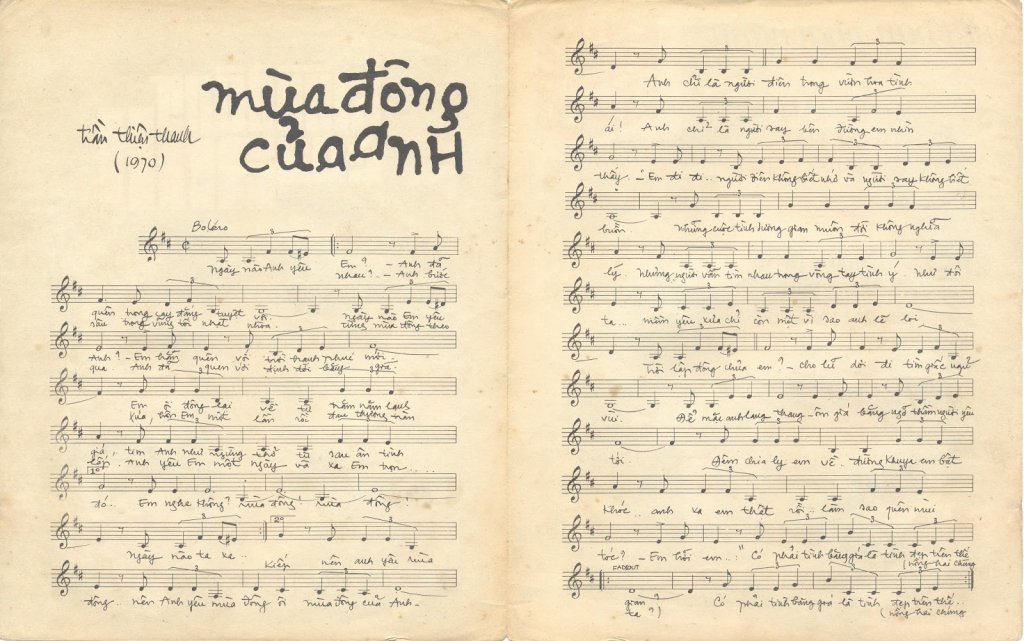 mùa đông
của anh
trần thiện thanh
(1970)
Boléro
Ngày nào Anh yêu Em? - Anh đã
nhau? - Anh bước
quên trong cay đắng tuyệt vời. ngày nào Em yêu
sâu trong vùng tối nhạt nhòa. từng mùa đông theo
Anh? - Em quên với trời hạnh phúc mới..
qua. Anh đã quen với đời băng giá.
Em ơi đông lại về từ trăm năm lạnh
xưa, Em một lần rồi đau thương
giá, tim Anh như ngừng thở từ sau ân tình
1º lắp. Anh yêu Em một ngày và xa Em trọn....
đó. Em nghe không? mùa đông! mùa đông!
ngày nào ta xa.. 2º Kiếp nên anh yêu mùa
đông.. nên Anh yêu mùa Đông ôi mùa đông của Anh-
Anh chỉ là người điên trong vườn hoa tình
ái! Anh chỉ là người say bên đường em nhìn
thấy. Em đi đi.. người điên không biết nhớ và người say không biết
buồn những cuộc tình dương gian muôn đời không nghĩa
lý. Những người vẫn tìm nhau trong vòng tay tình ý. như đôi
ta... mến yêu xưa chỉ còn một vì sao anh lẻ loi
hỏi lập đông chưa em? - cho lứa đôi đi tìm giấc ngủ
vùi. Để mắc anh lang thang - ôm giá băng ngỡ thầm người yêu
tới Đêm chia ly em về.. đường khuya em bật
khóc.. anh xa em thật rồi.. làm sao quên mùi
tóc? - Em hỡi em..! Có phải tình băng giá là tình đẹp trên thế
(nồng hai chúng
FADEOUT
gian Có phải tình băng giá là tình đẹp trên thế..
ta?) (nồng hai chúng